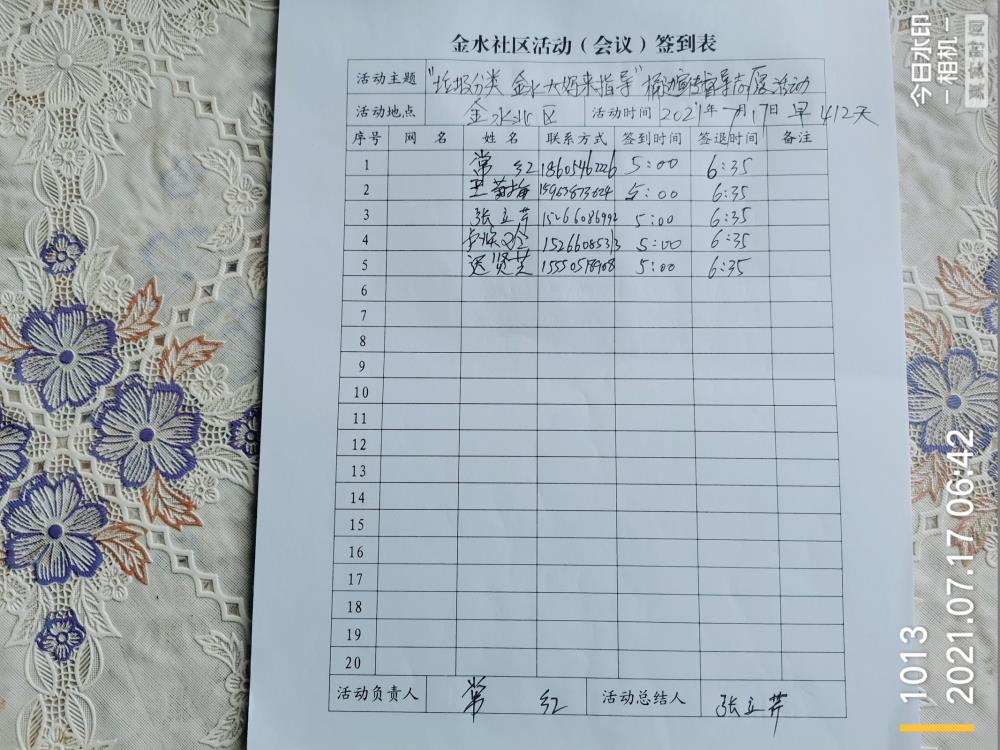 金水社区活动（会议）签到表
活动主题 "垃圾分类 金水大妈来指导" 桶边宣传督导志愿活动
活动地点 金水北区 活动时间 2021年7月17日 早 412天
序号 网名 姓名 联系方式 签到时间 签退时间 备注
1 常红 18605462226 5:00 6:35
2 王菊梅 15963873624 5:00 6:35
3 张立芹 15266086992 5:00 6:35
4 15266085313 5:00 6:35
5 迟贤芝 15550578908 5:00 6:35
6
7
8
9
10
11
12
13
14
15
16
17
18
19
20
活动负责人 常红 活动总结人 张立芹
今日水印
相机
真实时间
1013
2021.07.17 06:42